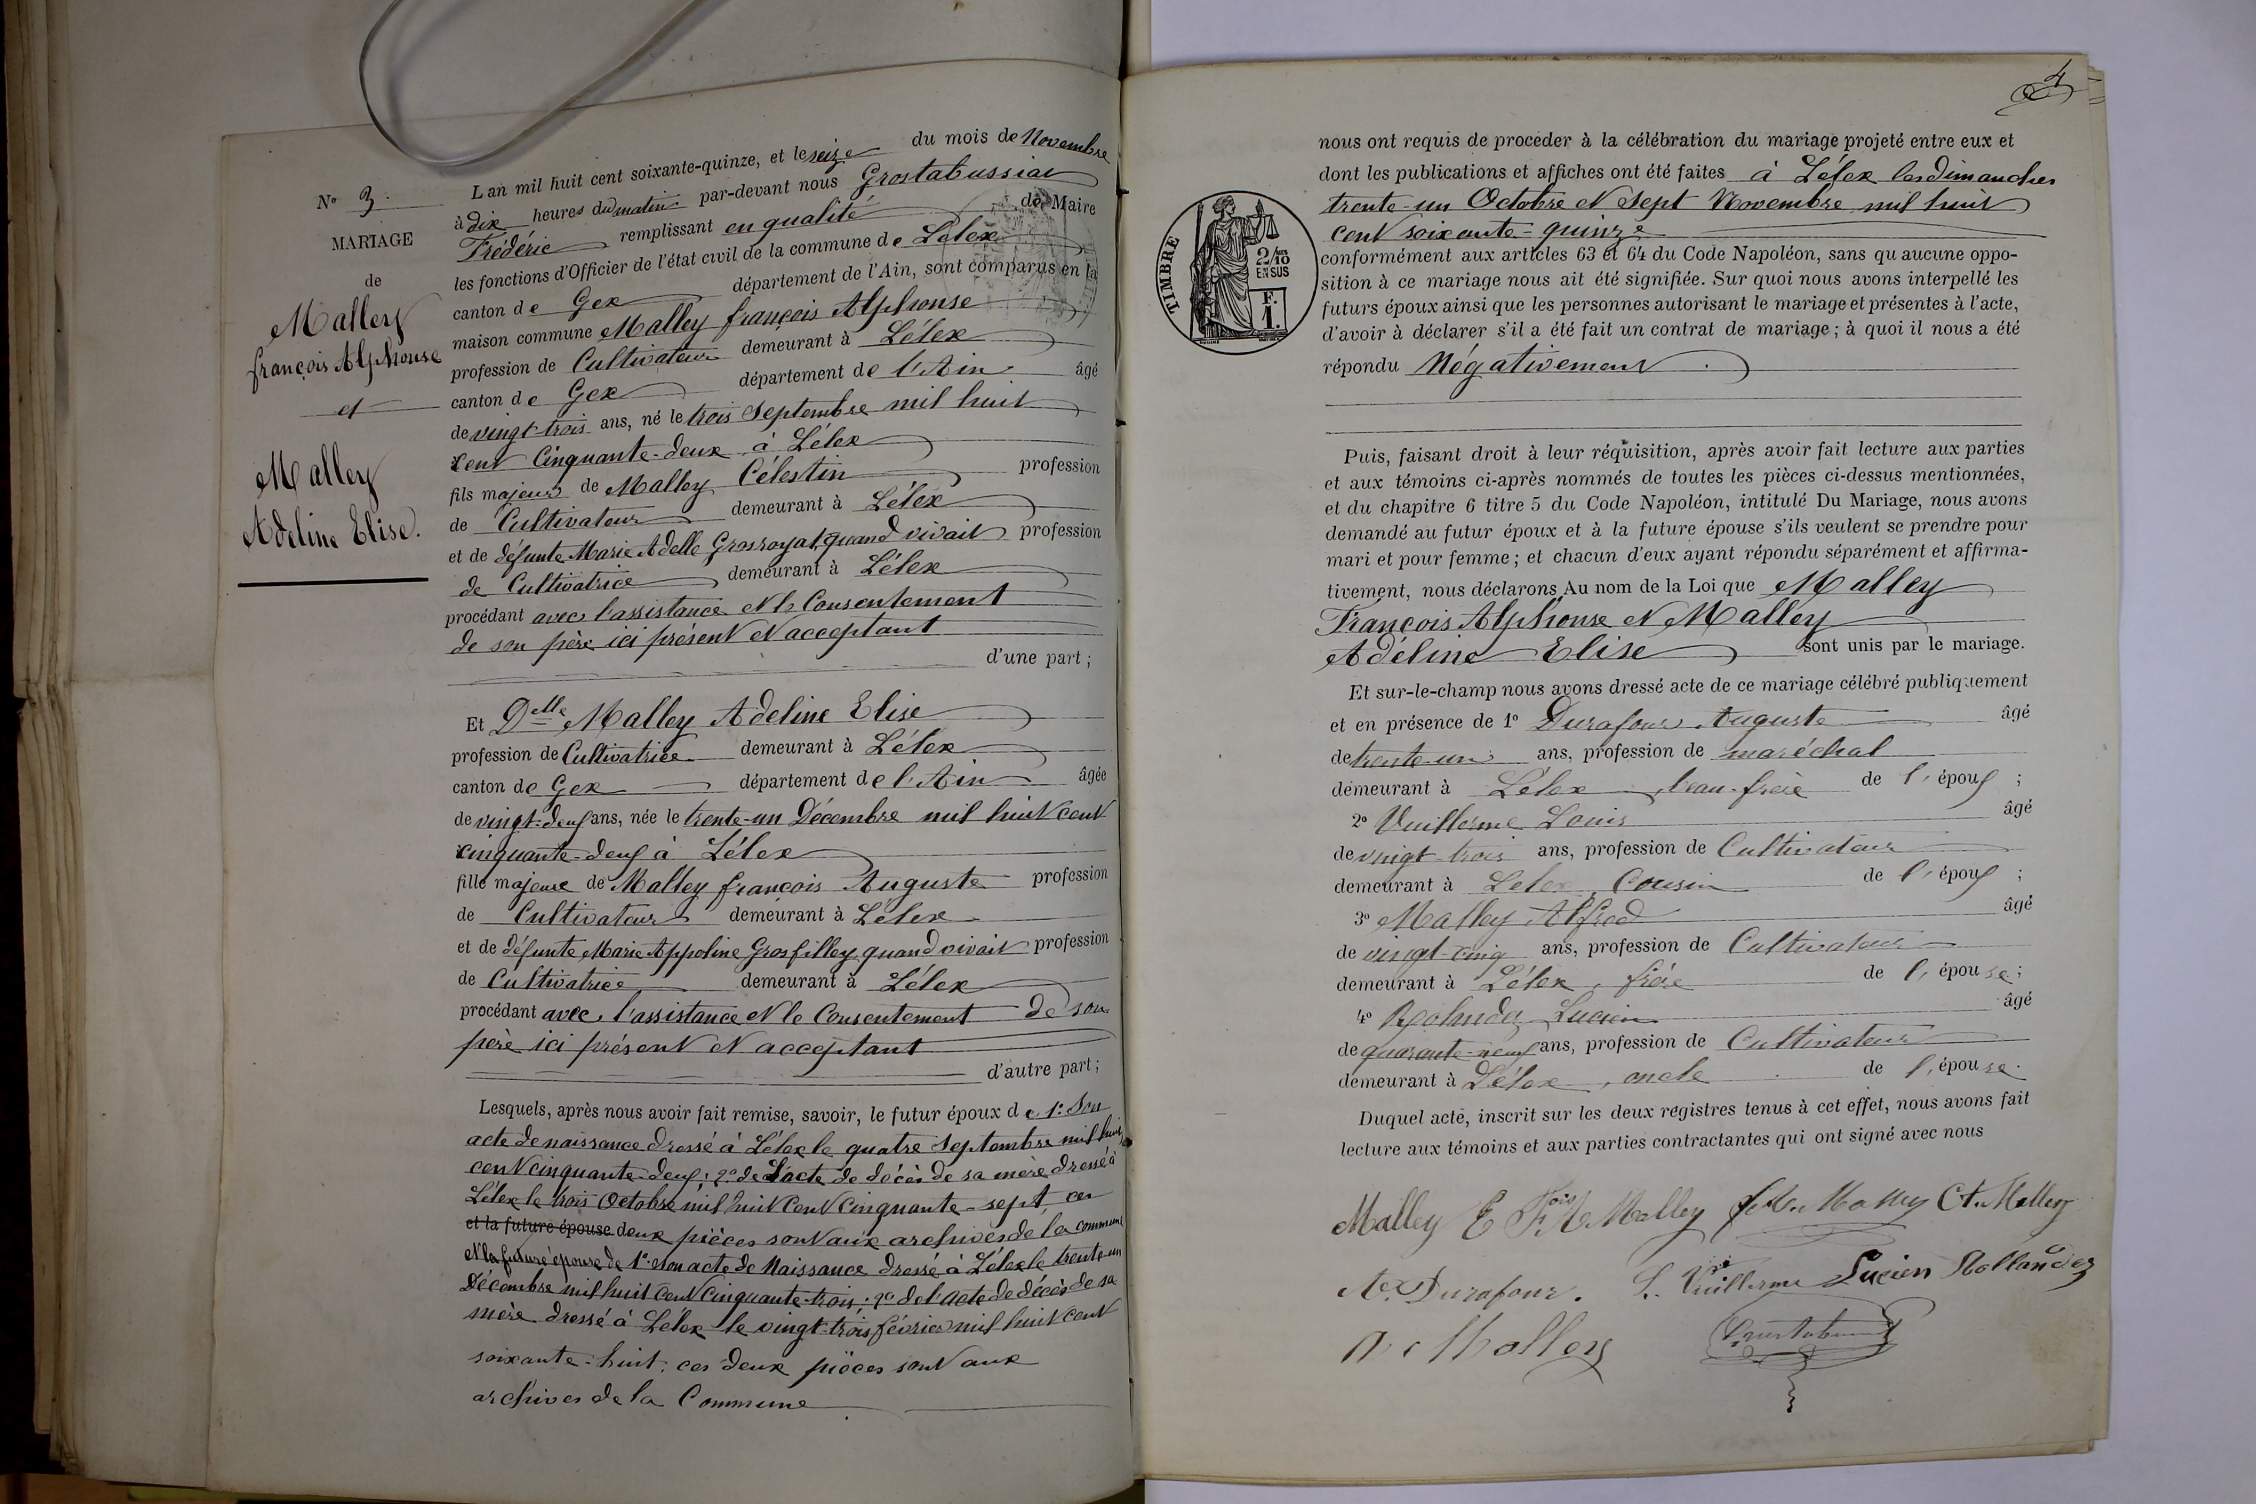 Nº 3.
MARIAGE
de
Malley
françois Alphonse
et
Malley
Adeline Elise.
L an mil huit cent soixante-quinze, et le seize du mois de Novembre
à dix heures du matin par-devant nous Grostabussiat
Frédéric remplissant en qualité de Maire
les fonctions d'Officier de l'état civil de la commune de Lélex
canton de Gex département de l'Ain, sont comparus en la
maison commune Malley françois Alphonse
profession de Cultivateur demeurant à Lélex
canton de Gex département de l'Ain âgé
de vingt-trois ans, né le trois Septembre mil huit
cent Cinquante-deux à Lélex
fils majeur de Malley Célestin profession
de Cultivateur demeurant à Lélex
et de défunte Marie Adelle Grosroyat, quand vivait profession
de Cultivatrice demeurant à Lélex
procédant avec l'assistance et le Consentement
de son père ici présent et acceptant
d'une part ;
Et Delle Malley Adeline Elise
profession de Cultivatrice demeurant à Lélex
canton de Gex département de l'Ain âgée
de vingt-deux ans, née le trente-un Décembre mil huit cent
cinquante-deux à Lélex
fille majeure de Malley françois Auguste profession
de Cultivateur demeurant à Lélex
et de défunte Marie Appoline Grosfilley, quand vivait profession
de Cultivatrice demeurant à Lélex
procédant avec l'assistance et le Consentement de son
père ici présent et acceptant
d'autre part ;
Lesquels, après nous avoir fait remise, savoir, le futur époux de 1º Son
acte de naissance dressé à Lélex le quatre Septembre mil huit
cent cinquante-deux ; 2º de L'acte de décès de sa mère dressé à
Lélex le trois Octobre mil huit cent cinquante-sept, ces
et la future épouse deux pièces sont aux archives de la commune
et la future épouse de 1º son acte de Naissance dressé à Lélex le trente-un
Décembre mil huit cent cinquante-trois ; 2º de l'acte de décès de sa
mère dressé à Lélex le vingt-trois février mil huit cent
soixante-huit. ces deux pièces sont aux
archives de la Commune
4
nous ont requis de procéder à la célébration du mariage projeté entre eux et
dont les publications et affiches ont été faites à Lélex les dimanches
trente-un Octobre et Sept Novembre mil huit
cent soixante-quinze
TIMBRE
2/10
EN SUS
F.
1.
conformément aux articles 63 et 64 du Code Napoléon, sans qu aucune oppo-
sition à ce mariage nous ait été signifiée. Sur quoi nous avons interpellé les
futurs époux ainsi que les personnes autorisant le mariage et présentes à l'acte,
d'avoir à déclarer s'il a été fait un contrat de mariage ; à quoi il nous a été
répondu Négativement
Puis, faisant droit à leur réquisition, après avoir fait lecture aux parties
et aux témoins ci-après nommés de toutes les pièces ci-dessus mentionnées,
et du chapitre 6 titre 5 du Code Napoléon, intitulé Du Mariage, nous avons
demandé au futur époux et à la future épouse s'ils veulent se prendre pour
mari et pour femme ; et chacun d'eux ayant répondu séparément et affirma-
tivement, nous déclarons Au nom de la Loi que Malley
François Alphonse et Malley
Adéline Elise sont unis par le mariage.
Et sur-le-champ nous avons dressé acte de ce mariage célébré publiquement
et en présence de 1º Durafour Auguste âgé
de trente-un ans, profession de maréchal
demeurant à Lélex, beau-frère de l'époux ;
2º Vuillerme Louis âgé
de vingt-trois ans, profession de Cultivateur
demeurant à Lélex, Cousin de l'époux ;
3º Malley Alfred âgé
de vingt-cinq ans, profession de Cultivateur
demeurant à Lélex, frère de l'épouse ;
4º Rolandez Lucien âgé
de quarante-neuf ans, profession de Cultivateur
demeurant à Lélex, oncle de l'épouse.
Duquel acte, inscrit sur les deux registres tenus à cet effet, nous avons fait
lecture aux témoins et aux parties contractantes qui ont signé avec nous
Malley E Fois A Malley Malley Ct. Malley
Ate Durafour. L. Vuillerme Lucien Rollandez
A Malley